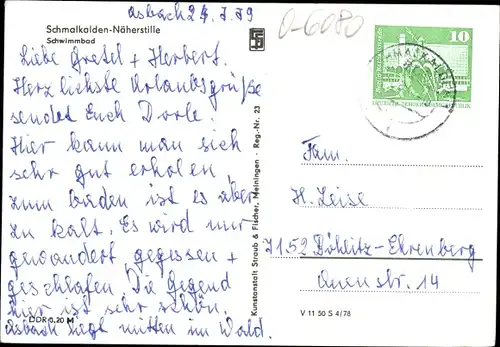 Asbach 24.7.79
0-6080
Schmalkalden-Näherstille
Schwimmbad
Liebe Gretel + Herbert.
Herzlichste Urlaubsgrüße
sendet Euch Dorle.
Hier kann man sich
sehr gut erholen,
zum baden ist es aber
zu kalt. Es wird nur
gewandert, gegessen +
geschlafen. Die Gegend
hier ist sehr schön.
Asbach liegt mitten im Wald.
DDR 0,20 M
Kunstanstalt Straub & Fischer, Meiningen - Reg.-Nr. 23
10
Fam.
H. Zeise
7152 Böhlitz-Ehrenberg
Querstr. 14
V 11 50 S 4/78